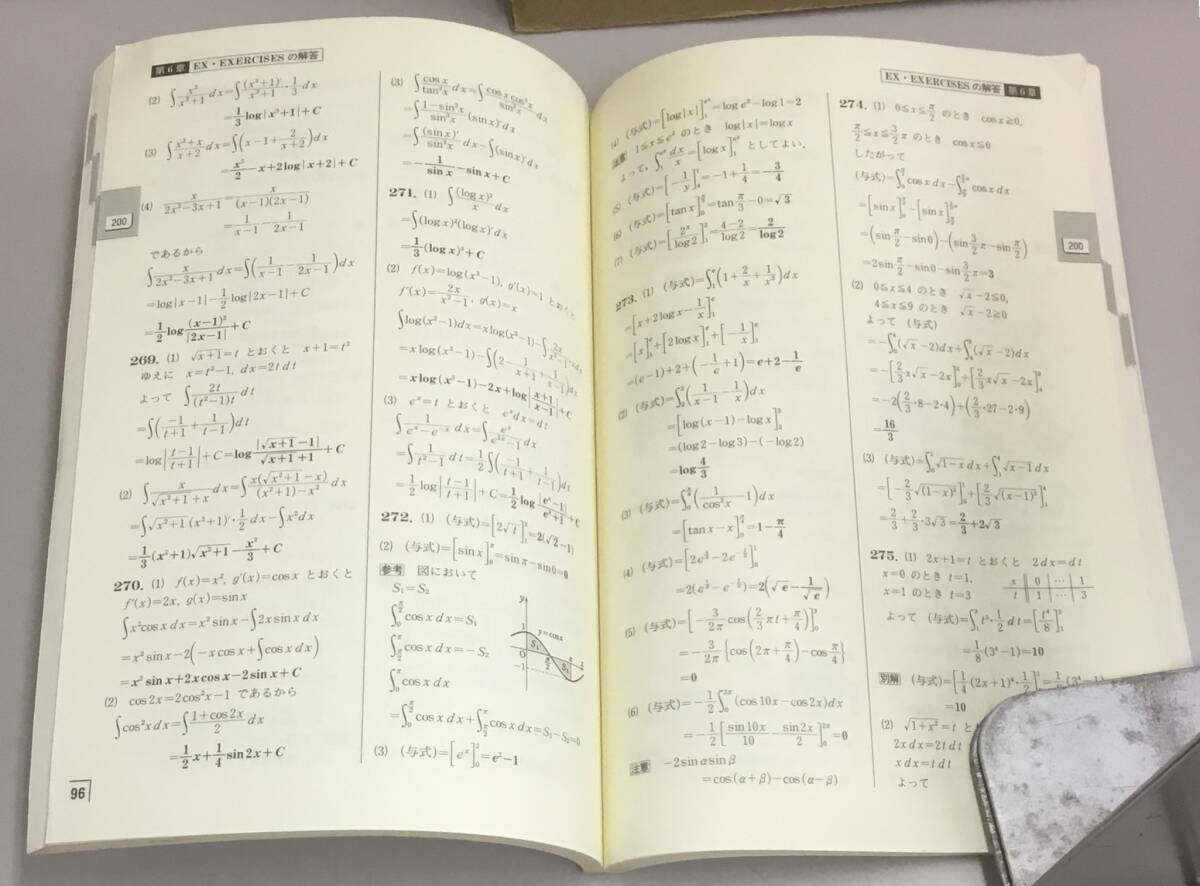 第6章 EX・EXERCISESの解答
(2) ∫x²/(x³+1)dx=∫(x³+1)'/(x³+1)・1/3dx
=1/3log|x³+1|+C
(3) ∫(x²+x)/(x+2)dx=∫(x-1+2/(x+2))dx
=x²/2-x+2log|x+2|+C
(4) x/(2x²-3x+1)=x/((x-1)(2x-1))
=1/(x-1)-1/(2x-1)
であるから
∫x/(2x²-3x+1)dx=∫(1/(x-1)-1/(2x-1))dx
=log|x-1|-1/2log|2x-1|+C
=1/2log(x-1)²/|2x-1|+C
269. (1) √(x+1)=t とおくと x+1=t²
ゆえに x=t²-1, dx=2tdt
よって ∫2t/((t²-1)t)dt
=∫(-1/(t+1)+1/(t-1))dt
=log|(t-1)/(t+1)|+C=log|√(x+1)-1|/(√(x+1)+1)+C
(2) ∫x/(√(x²+1)+x)dx=∫x(√(x²+1)-x)/((x²+1)-x²)dx
=∫√(x²+1)(x²+1)'・1/2dx-∫x²dx
=1/3(x²+1)√(x²+1)-x³/3+C
270. (1) f(x)=x², g'(x)=cosx とおくと
f'(x)=2x, g(x)=sinx
∫x²cosxdx=x²sinx-∫2xsinxdx
=x²sinx-2(-xcosx+∫cosxdx)
=x²sinx+2xcosx-2sinx+C
(2) cos2x=2cos²x-1 であるから
∫cos²xdx=∫(1+cos2x)/2dx
=1/2x+1/4sin2x+C
96
200
(3) ∫cosx/tan²xdx=∫cosxcos²x/sin²xdx
=∫(1-sin²x)/sin²x(sinx)'dx
=∫(sinx)'/sin²xdx-∫(sinx)'dx
=-1/sinx-sinx+C
271. (1) ∫(logx)²/xdx
=∫(logx)²(logx)'dx
=1/3(logx)³+C
(2) f(x)=log(x²-1), g'(x)=1 とおくと
f'(x)=2x/(x²-1), g(x)=x
∫log(x²-1)dx=xlog(x²-1)-∫
=xlog(x²-1)-∫(2-1/(x+1)+1/(x-1))dx
=xlog(x²-1)-2x+log|(x+1)/(x-1)|+C
(3) eˣ=t とおくと eˣdx=dt
∫1/(eˣ-e⁻ˣ)dx=∫eˣ/(e²ˣ-1)dx
=∫1/(t²-1)dt=1/2∫(-1/(t+1)+1/(t-1))dt
=1/2log|(t-1)/(t+1)|+C=1/2log|eˣ-1|/(eˣ+1)+C
272. (1) (与式)=[2√t]₁²=2(√2-1)
(2) (与式)=[sinx]₀^π=sinπ-sin0=0
参考 図において
S₁=S₂
∫₀^(π/2)cosxdx=S₁
∫_(π/2)^πcosxdx=-S₂
∫₀^πcosxdx
=∫₀^(π/2)cosxdx+∫_(π/2)^πcosxdx=S₁-S₂=0
y
1
y=cosx
S₁
0
π/2
-1
(3) (与式)=[eˣ]₀²=e²-1
EX・EXERCISESの解答 第6章
(4) (与式)=[log|x|]₁^(e²)=loge²-log1=2
注意 1≦x≦e² のとき log|x|=logx
よって, ∫₁^(e²)dx/x=[logx]₁^(e²) としてよい.
(5) (与式)=[-1/y]₁⁴=-1/4+1=-3/4
(6) (与式)=[tanx]₀^(π/3)=tanπ/3-0=√3
(7) (与式)=[2ˣ/log2]₁²=(4-2)/log2=2/log2
273. (1) (与式)=∫₁^e(1+2/x+1/x²)dx
=[x+2logx-1/x]₁^e
=[x]₁^e+[2logx]₁^e+[-1/x]₁^e
=(e-1)+2+(-1/e+1)=e+2-1/e
(2) (与式)=∫₂³(1/(x-1)-1/x)dx
=[log(x-1)-logx]₂³
=(log2-log3)-(-log2)
=log4/3
(3) (与式)=∫₀^(π/4)(1/cos²x-1)dx
=[tanx-x]₀^(π/4)=1-π/4
(4) (与式)=[2e^(x/2)-2e^(-x/2)]₀¹
=2(e^(1/2)-e^(-1/2))=2(√e-1/√e)
(5) (与式)=[-3/2πcos(2/3πt+π/4)]₀³
=-3/2π{cos(2π+π/4)-cosπ/4}
=0
(6) (与式)=-1/2∫₀^(2π)(cos10x-cos2x)dx
=-1/2[sin10x/10-sin2x/2]₀^(2π)=0
注意 -2sinαsinβ
=cos(α+β)-cos(α-β)
274. (1) 0≦x≦π/2 のとき cosx≧0,
π/2≦x≦3/2π のとき cosx≦0
したがって
(与式)=∫₀^(π/2)cosxdx-∫_(π/2)^(3π/2)cosxdx
=[sinx]₀^(π/2)-[sinx]_(π/2)^(3π/2)
=(sinπ/2-sin0)-(sin3/2π-sinπ/2)
=2sinπ/2-sin0-sin3/2π=3
(2) 0≦x≦4 のとき √x-2≦0,
4≦x≦9 のとき √x-2≧0
よって (与式)
=-∫₀⁴(√x-2)dx+∫₄⁹(√x-2)dx
=-[2/3x√x-2x]₀⁴+[2/3x√x-2x]₄⁹
=-2(2/3・8-2・4)+(2/3・27-2・9)
=16/3
(3) (与式)=∫₀¹√(1-x)dx+∫₁⁴√(x-1)dx
=[-2/3√(1-x)³]₀¹+[2/3√(x-1)³]₁⁴
=2/3+2/3・3√3=2/3+2√3
275. (1) 2x+1=t とおくと 2dx=dt
x=0 のとき t=1,
x=1 のとき t=3
x 0 … 1
t 1 … 3
よって (与式)=∫₁³t³・1/2dt=[t⁴/8]₁³
=1/8(3⁴-1)=10
別解 (与式)=[1/4(2x+1)⁴・1/2]
=10
(2) √(1+x²)=t と
2xdx=2tdt
xdx=tdt
よって
200